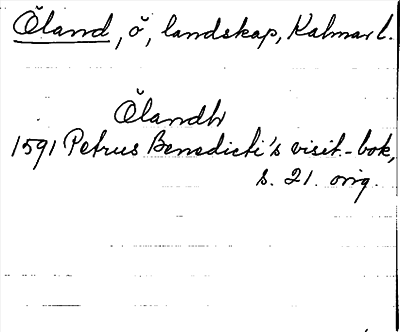 Öland, ö, landskap, Kalmar l.
Ölandh
1591 Petrus Benedicti's visit.-bok,
s. 21. orig.